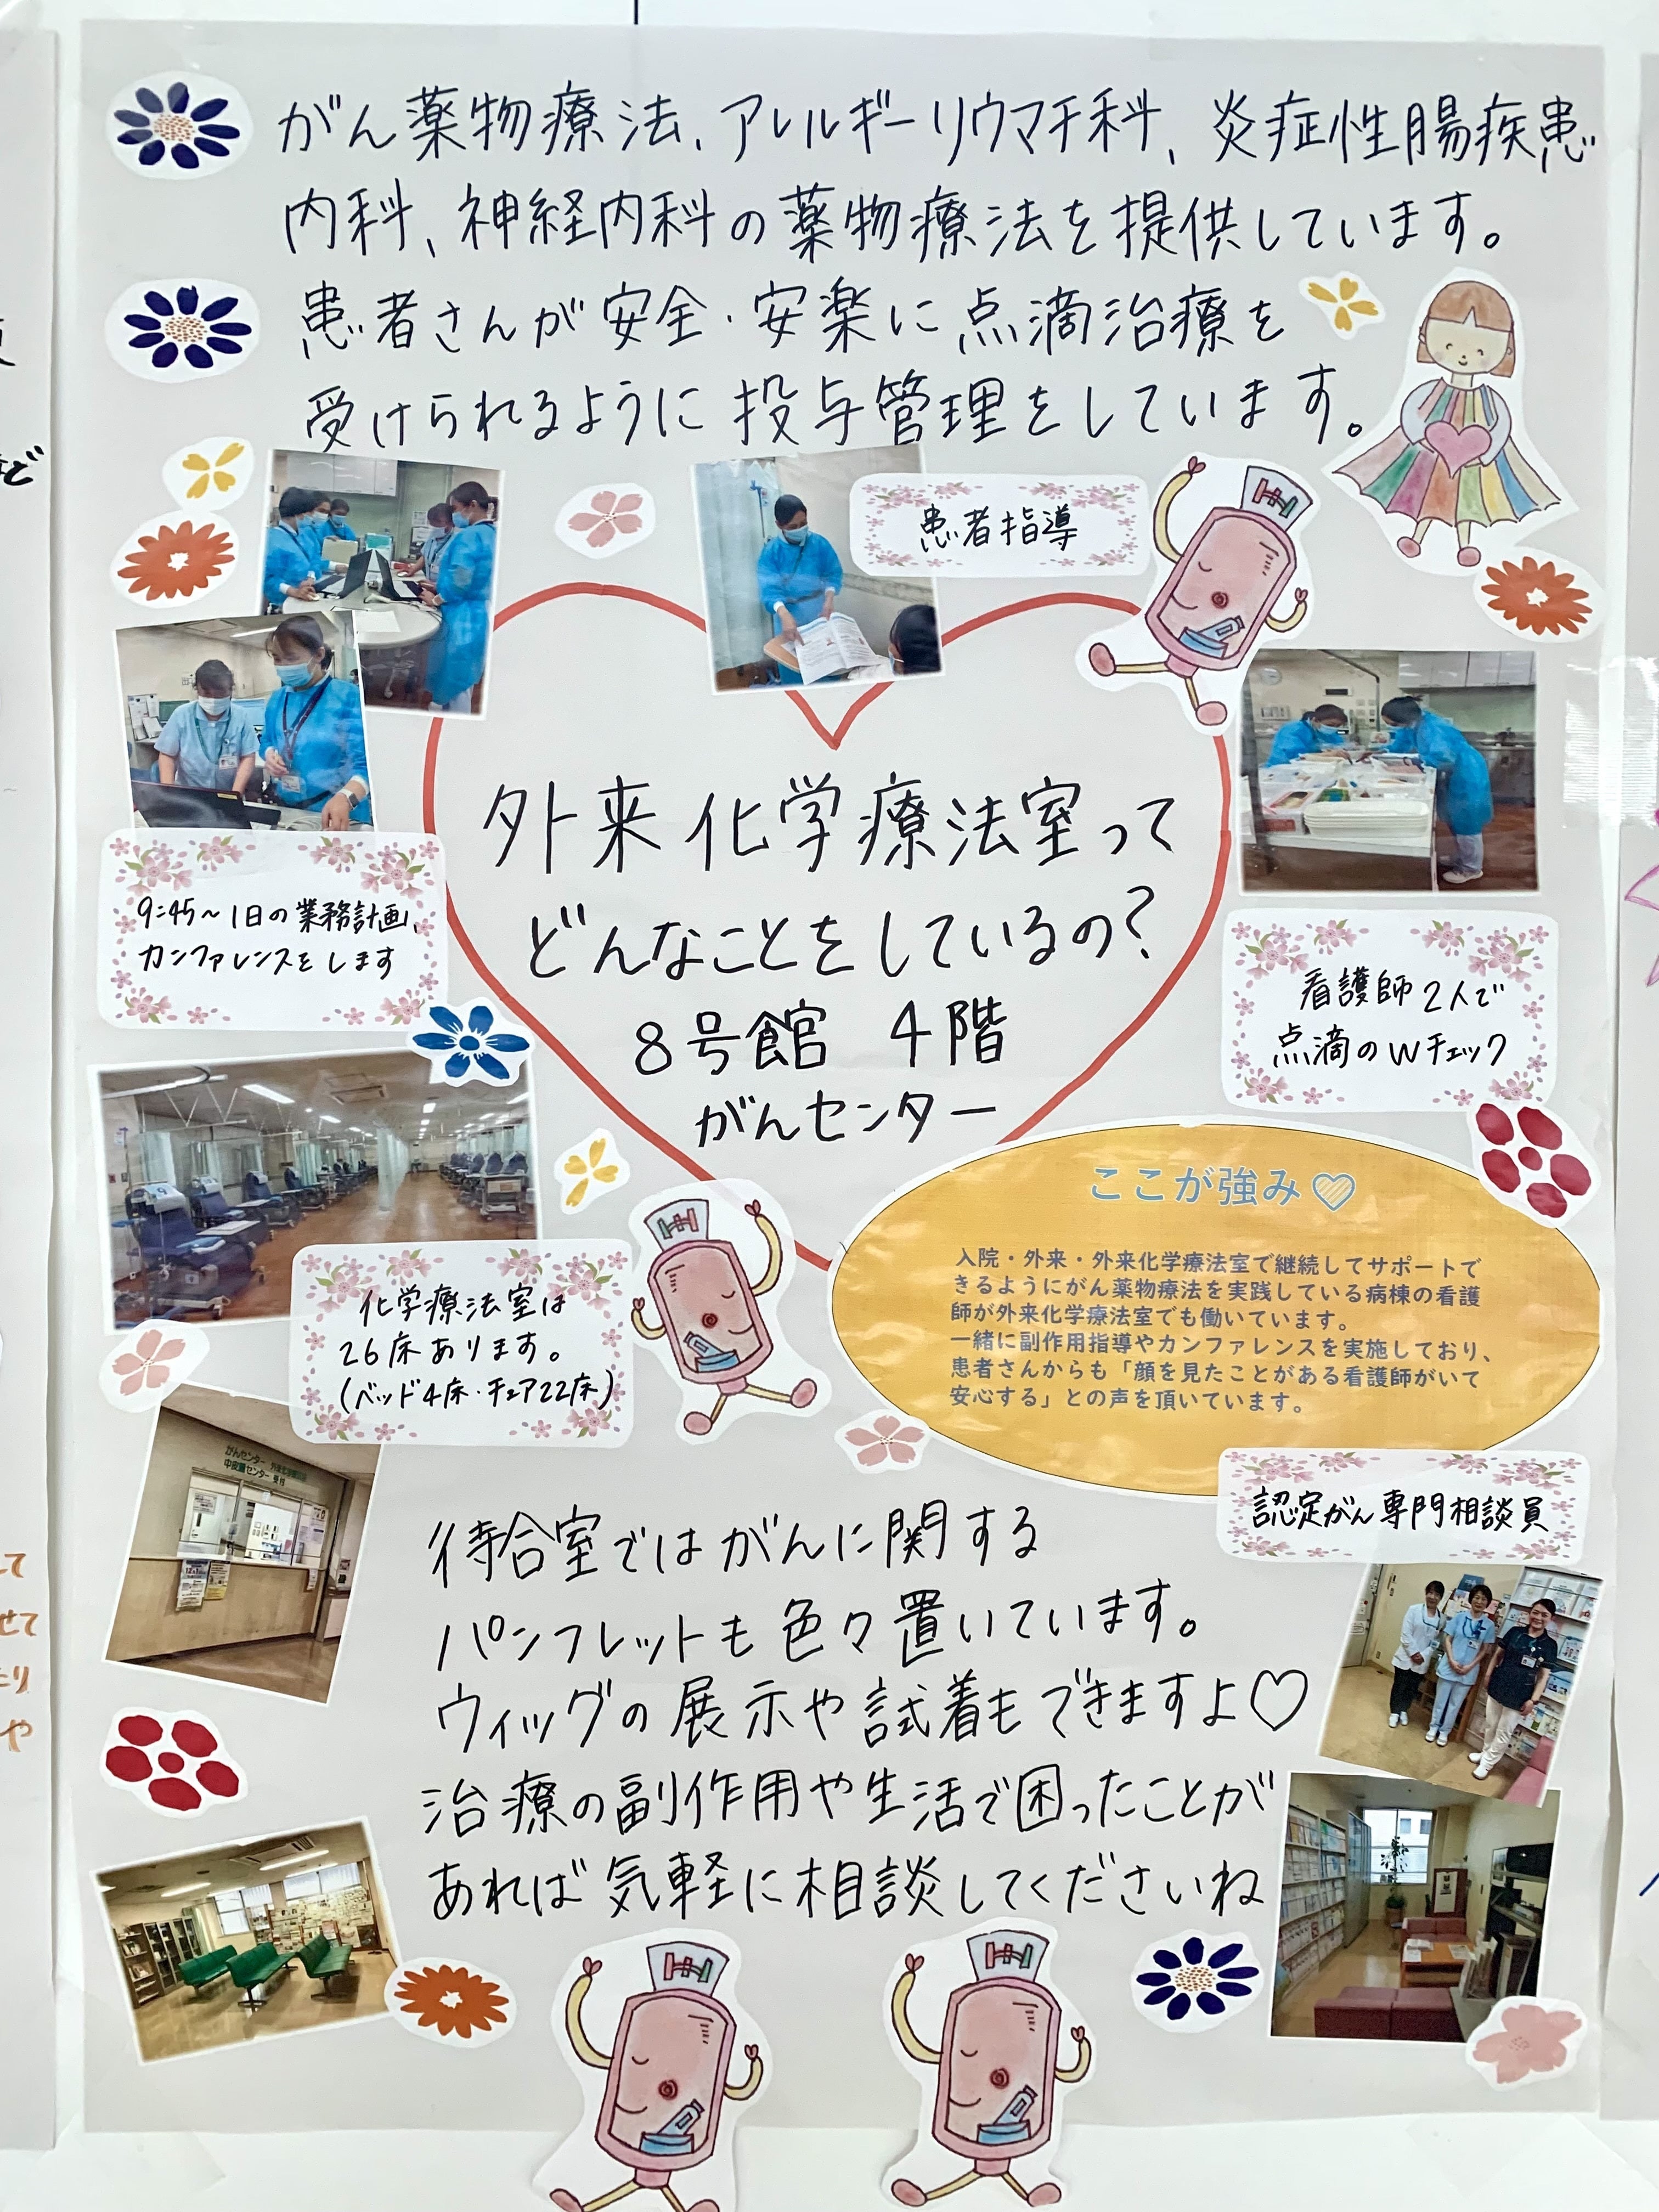 がん薬物療法、アレルギーリウマチ科、炎症性腸疾患
内科、神経内科の薬物療法を提供しています。
患者さんが安全・安楽に点滴治療を
受けられるように投与管理をしています。
患者指導
外来化学療法室って
どんなことをしているの?
8号館 4階
がんセンター
9:45～1日の業務計画、
カンファレンスをします
看護師2人で
点滴のWチェック
ここが強み♡
入院・外来・外来化学療法室で継続してサポートで
きるようにがん薬物療法を実践している病棟の看護
師が外来化学療法室でも働いています。
一緒に副作用指導やカンファレンスを実施しており、
患者さんからも「顔を見たことがある看護師がいて
安心する」との声を頂いています。
化学療法室は
26床あります。
(ベッド4床・チェア22床)
認定がん専門相談員
待合室ではがんに関する
パンフレットも色々置いています。
ウィッグの展示や試着もできますよ♡
治療の副作用や生活で困ったことが
あれば気軽に相談してくださいね